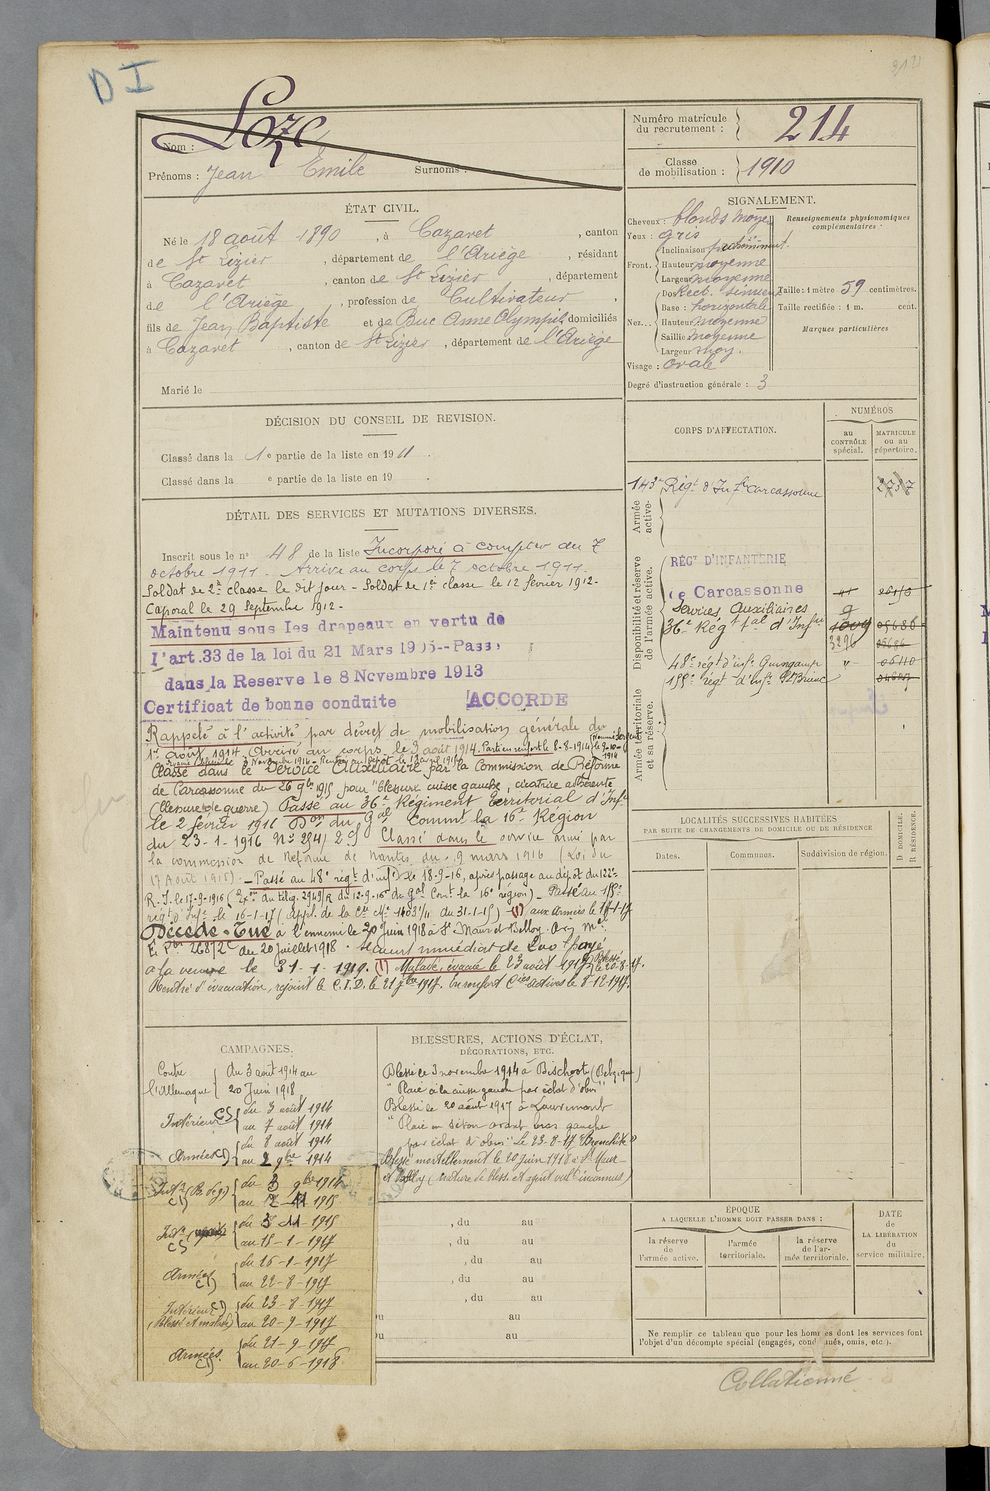 D I
Loze
Nom :
Prénoms : Jean Emile Surnoms :
Numéro matricule du recrutement : 214
Classe de mobilisation : 1910
ÉTAT CIVIL.
Né le 18 août 1890, à Cazavet, canton
de St Lizier, département de l'Ariège, résidant
à Cazavet, canton de St Lizier, département
de l'Ariège, profession de Cultivateur,
fils de Jean Baptiste et de Buc Anne Olympe domiciliés
à Cazavet, canton de St Lizier, département de l'Ariège
Marié le
SIGNALEMENT.
Cheveux : blonds moyen
Yeux : gris
Front. Inclinaison proéminent.
Hauteur moyenne
Largeur moyenne
Nez... Dos Rect. sinueux
Base : horizontale
Hauteur moyenne
Saillie moyenne
Largeur moy.
Visage : ovale
Renseignements physionomiques complémentaires :
Taille : 1 mètre 59 centimètres.
Taille rectifiée : 1 m. cent.
Marques particulières
Degré d'instruction générale : 3
DÉCISION DU CONSEIL DE REVISION.
Classé dans la 1e partie de la liste en 1911.
Classé dans la e partie de la liste en 19 .
DÉTAIL DES SERVICES ET MUTATIONS DIVERSES.
Inscrit sous le n° 48 de la liste Incorporé à compter du 7
octobre 1911 - Arrivé au corps le 7 octobre 1911 -
Soldat de 2e classe le dit jour - Soldat de 1re classe le 12 février 1912 -
Caporal le 29 Septembre 1912 -
Maintenu sous les drapeaux en vertu de
l'art.33 de la loi du 21 Mars 1905 -- Passé
dans la Reserve le 8 Novembre 1913
Certificat de bonne conduite ACCORDE
Rappelé à l'activité par décret de mobilisation générale du
1er août 1914. Arrivé au corps le 3 août 1914. Parti en renfort le 8-8-1914
Classé dans le Service Auxiliaire par la Commission de Réforme
de Carcassonne du 26 9bre 1915 pour "blessure cuisse gauche, cicatrice adhérente
(blessure de guerre) Passé au 36e Régiment Territorial d'Infie
le 2 février 1916 Don du Gal Commt la 16e Région
du 23-1-1916 No 254/2 S Classé dans le service armé par
la commission de Réforme de Nantes du 9 mars 1916 (Loi du
17 Août 1915) - Passé au 48e régt d'infie le 18-9-16, après passage au dépôt du 122e
R.I. le 17-9-1916
régt d'Infie le 16-1-17 (1) aux Armées le 16-1-17
Décédé - Tué à l'ennemi le 20 Juin 1918 à St Maur et Belloy
du 20 Juillet 1918 - Secours immédiat de 200f payé
à la veuve le 31-1-1919. (1) Malade, évacué le 23 août 1917
Rentré d'évacuation, rejoint le C.I.D. le 21 7bre 1917. En renfort Cies actives le 8-12-1917.
CORPS D'AFFECTATION.
NUMÉROS
au CONTRÔLE spécial.
MATRICULE ou au répertoire.
Armée active.
143e Régt d'Infie Carcassonne
Disponibilité et réserve de l'armée active.
RÉGT D'INFANTERIE
de Carcassonne
Services Auxiliaires 9
36e Régt Tal d'Infie 1009 05686
3296 05686
48e régt d'infie Guingamp " 05110
155e régt d'infie St Brieuc
Armée territoriale et sa réserve.
LOCALITÉS SUCCESSIVES HABITÉES
PAR SUITE DE CHANGEMENTS DE DOMICILE OU DE RÉSIDENCE
Dates.
Communes.
Subdivision de région.
D DOMICILE. R RÉSIDENCE.
CAMPAGNES.
Contre l'Allemagne du 3 août 1914 au 20 Juin 1918
Intérieur CS du 3 août 1914
au 7 août 1914
Armées CD du 8 août 1914
au 2 9bre 1914
du 3 9bre 1914
au 2-11-1915
CS du 3-11-1915
au 15-1-1917
Armées CD du 16-1-1917
au 22-8-1917
Intérieur CD du 23-8-1917
(Blessé et malade) au 20-9-1917
Armées CD du 21-9-1917
au 20-6-1918
BLESSURES, ACTIONS D'ÉCLAT,
DÉCORATIONS, ETC.
Blessé le 3 novembre 1914 à Bischoot (Belgique)
"Plaie à la cuisse gauche par éclat d'obus"
Blessé le 20 août 1917 à Louvemont
"Plaie en séton avant bras gauche
par éclat d'obus" Le 23-8-17 "Bronchite"
Blessé mortellement le 20 juin 1918 à St Maur
et Belloy (nature de bless. et agent vult inconnus)
, du au
, du au
, du au
, du au
, du au
du au
du au
ÉPOQUE
A LAQUELLE L'HOMME DOIT PASSER DANS :
la réserve de l'armée active.
l'armée territoriale.
la réserve de l'armée territoriale.
DATE DE LA LIBÉRATION du service militaire.
Ne remplir ce tableau que pour les hommes dont les services font
l'objet d'un décompte spécial (engagés, condamnés, omis, etc.).
Collationné